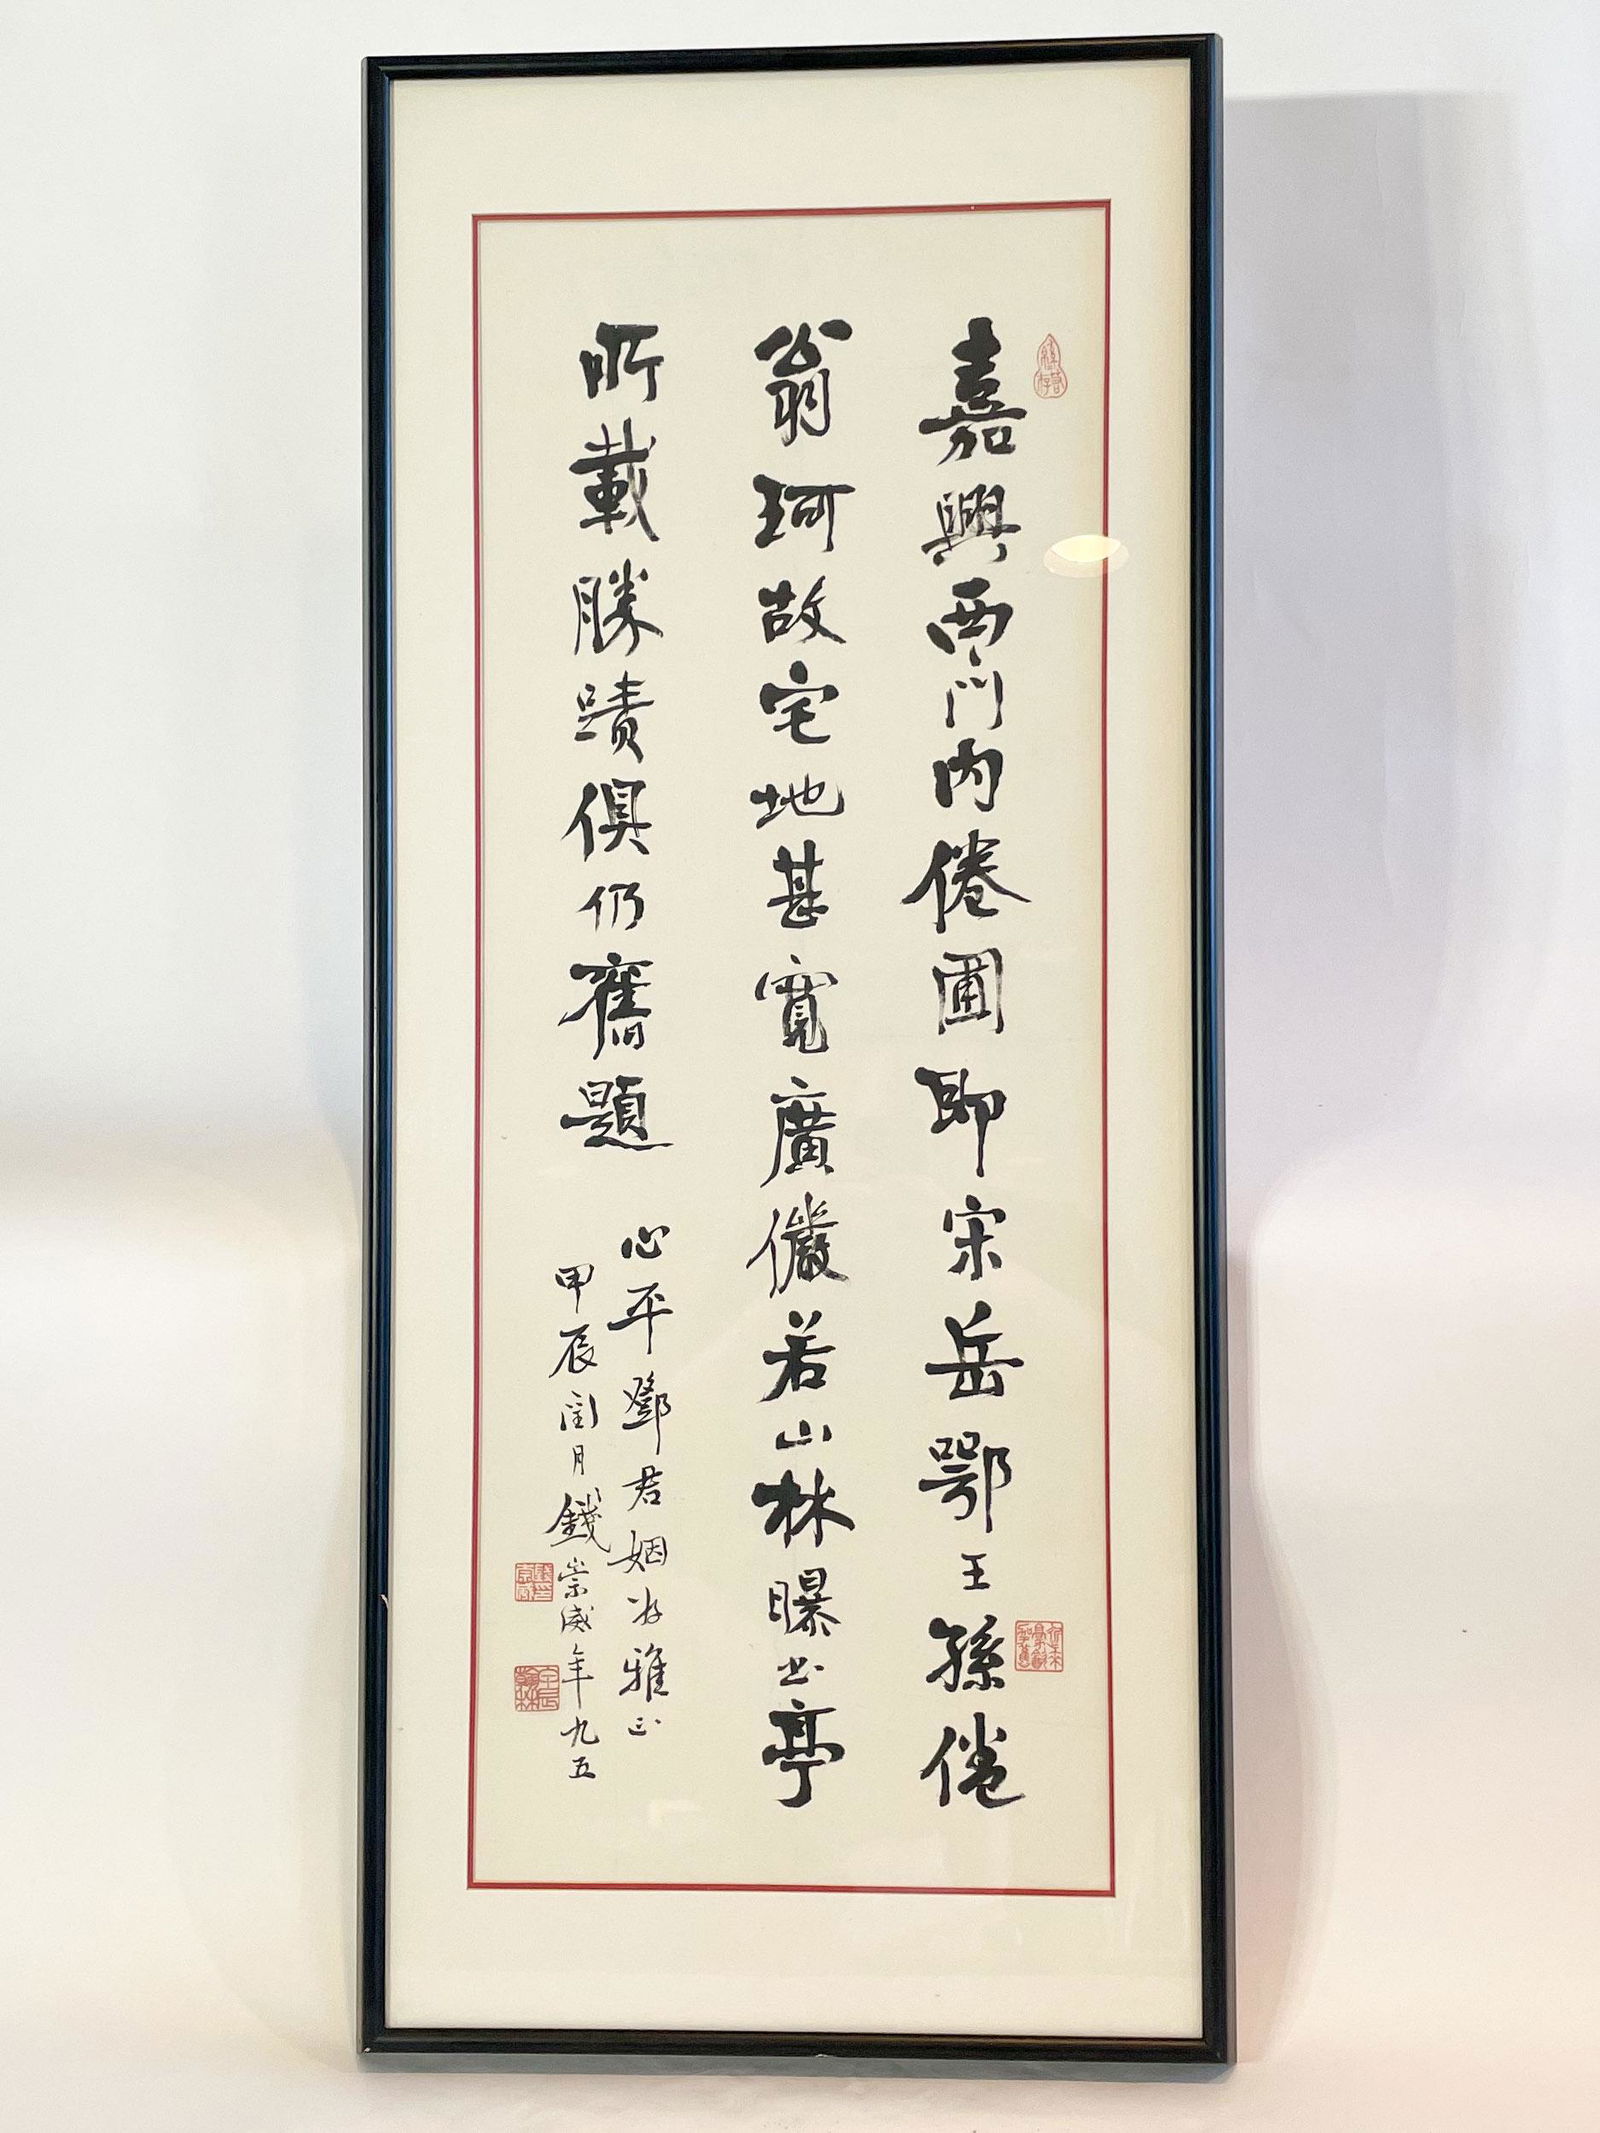 嘉興西門內倦圃即宋岳鄂王孫倦
翁珂故宅地甚寬廣儼若山林曝书亭
所載勝蹟俱仍舊題
心平鄧君姻好雅正
甲辰閏月錢崇威年九五